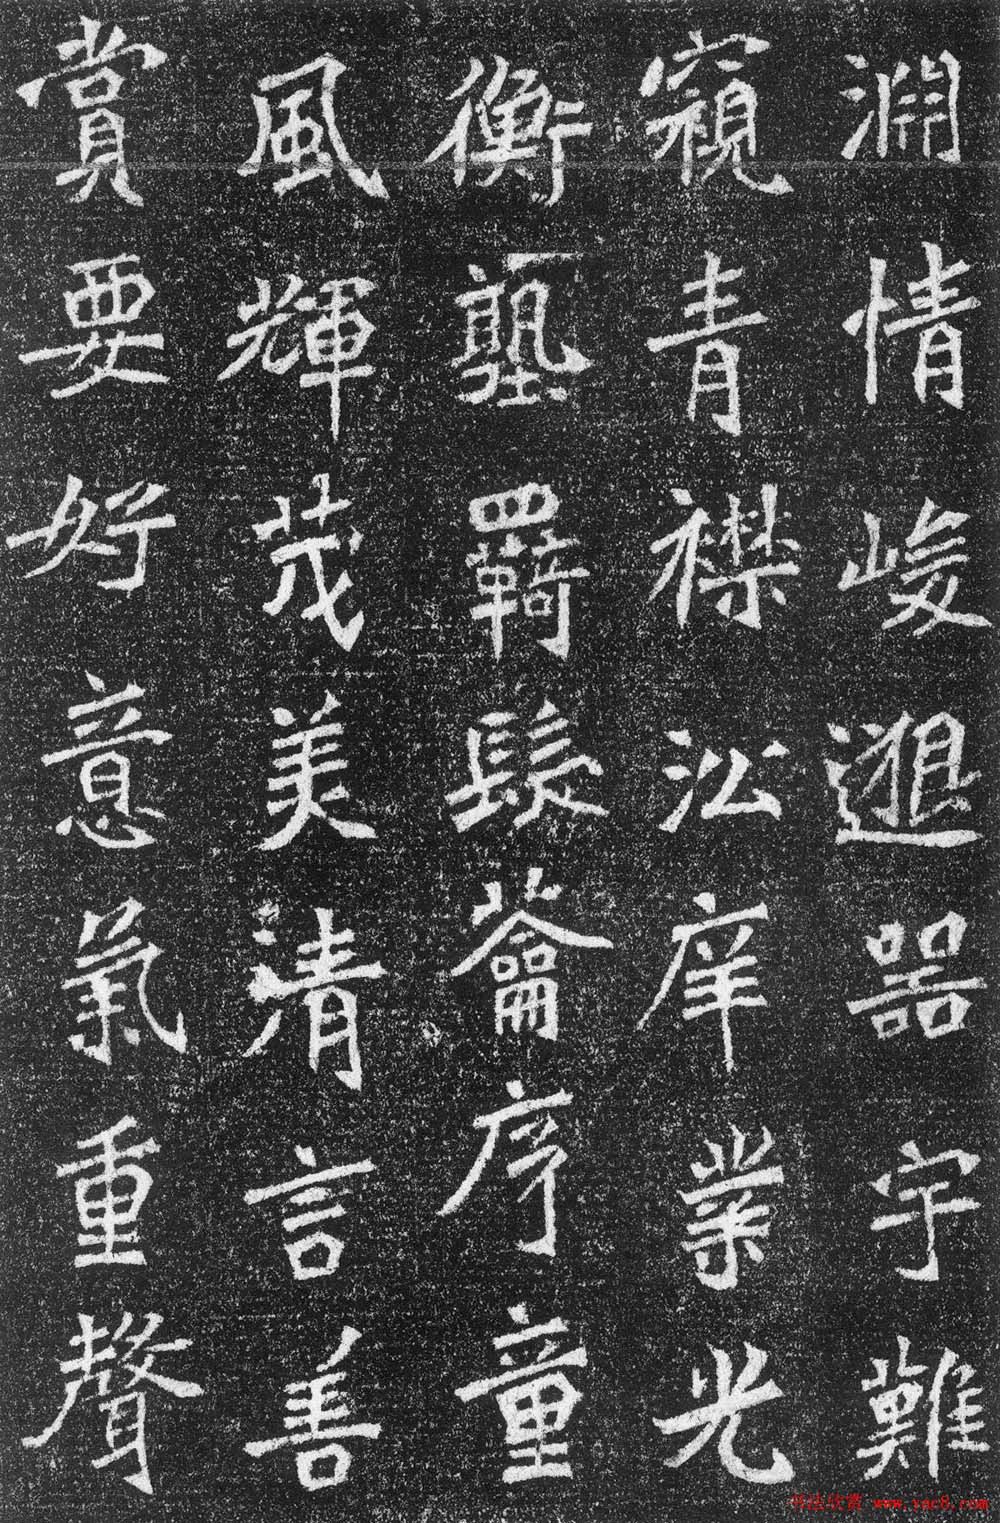 淵情峻邈器宇難
窺青襟沿庠業光
衡塾羈髮蘥序童
風輝茂美清言善
賞要好意氣重聲
书法欣赏 www.yac8.com